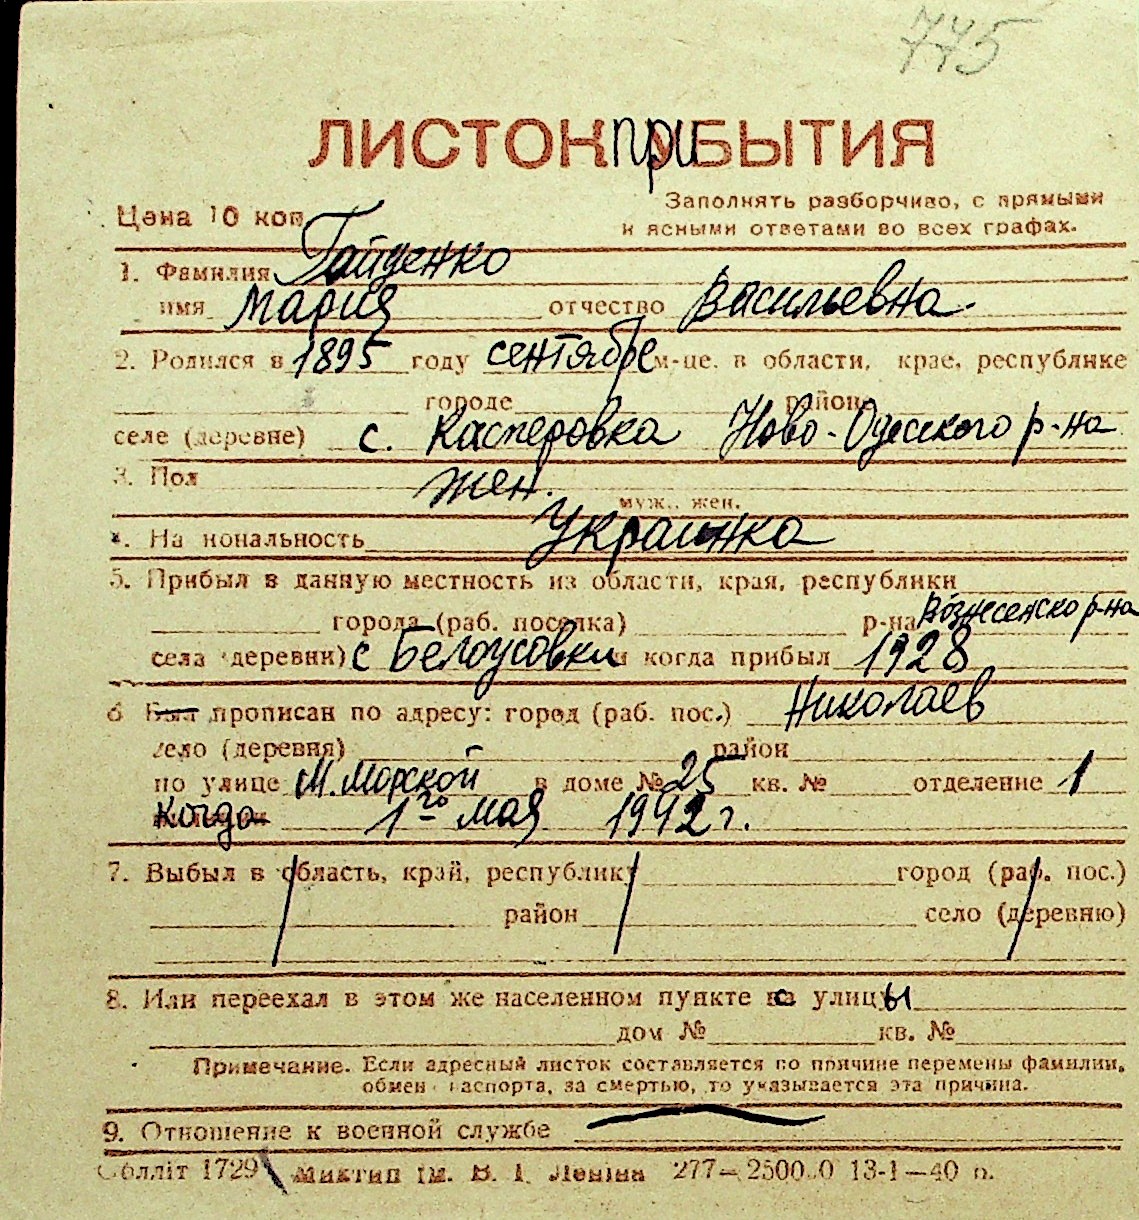 775
ЛИСТОК ПРИБЫТИЯ
Цена 10 коп
Заполнять разборчиво, с прямыми
и ясными ответами во всех графах.
1. Фамилия Гайденко
имя Мария отчество Васильевна
2. Родился в 1895 году сентябре м-це. в области, крае, республике
городе район
селе (деревне) с. Касперовка Ново-Одесского р-на
3. Пол жен.
муж., жен.
4. На нональность Украинка
5. Прибыл в данную местность из области, края, республики
города (раб. поселка) р-на Вознесенско р-на
села (деревни) с Белоусовки и когда прибыл 1928
6 Был прописан по адресу: город (раб. пос.) Николаев
село (деревня) район
по улице М. Морской в доме № 25 кв. № отделение 1
когда 1го мая 1942 г.
7. Выбыл в область, край, республику город (раб. пос.)
район село (деревню)
8. Или переехал в этом же населенном пункте с улицы
дом № кв. №
Примечание. Если адресный листок составляется по причине перемены фамилии,
обмен паспорта, за смертью, то указывается эта причина.
9. Отношение к военной службе
Облліт 1729 Миктип ім. В. І. Леніна 277—2500.0 13-1—40 р.